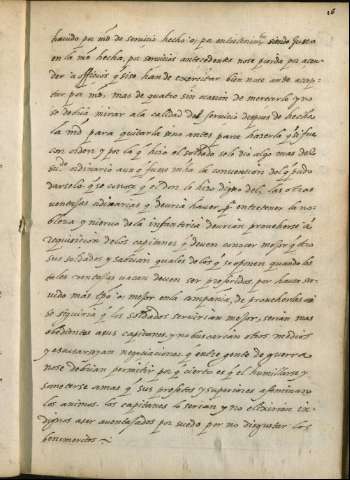 16
havido por md. de servicio hecho o pa entretenimto. siendo justa
en la md. hecha, por servicios antecedentes no se pierda por acen
der a officios q̃ se han de exercitar bien no se ante acep
tar por md. mas de quatro sin ocasion de merecerla y no
se deviá mirar a la calidad del servicio despues de hecha
la md. para quitarla sino antes para hazerla
con orden y por lo q̃ hizo el soldado solo dio algo mas del
ordinario
darselo q̃ se conoce q̃ el don le hizo digno del, las otras
ventajas ordinarias q̃ devria haver pa. entretener la no
bleza y niervo de la infanteria devrian proveherse á
requisicion de los capitanes q̃ deven conocer mejor q̃ otro
sus soldados y sabrian quales de los q̃ se oponen quando las
tales ventajas vacan deven ser preferidos por haver ser
vido mas tpo. o mejor en la compania, de proveherlas assi
se siguiria q̃ los soldados servirian mejor, serian mas
obedientes a sus capitanes, y no buscarian otros medios
y escusarian negociaciones q̃ entre gente de guerra
no se devian permitir por q̃ cierto es q̃ el humillarse y
someterse a mas q̃ sus propios y superiores afeminan
los animos. los capitanes lo serian y no elixirian in
dignos a ser aventajados por miedo por no disgustar los
benemeritos